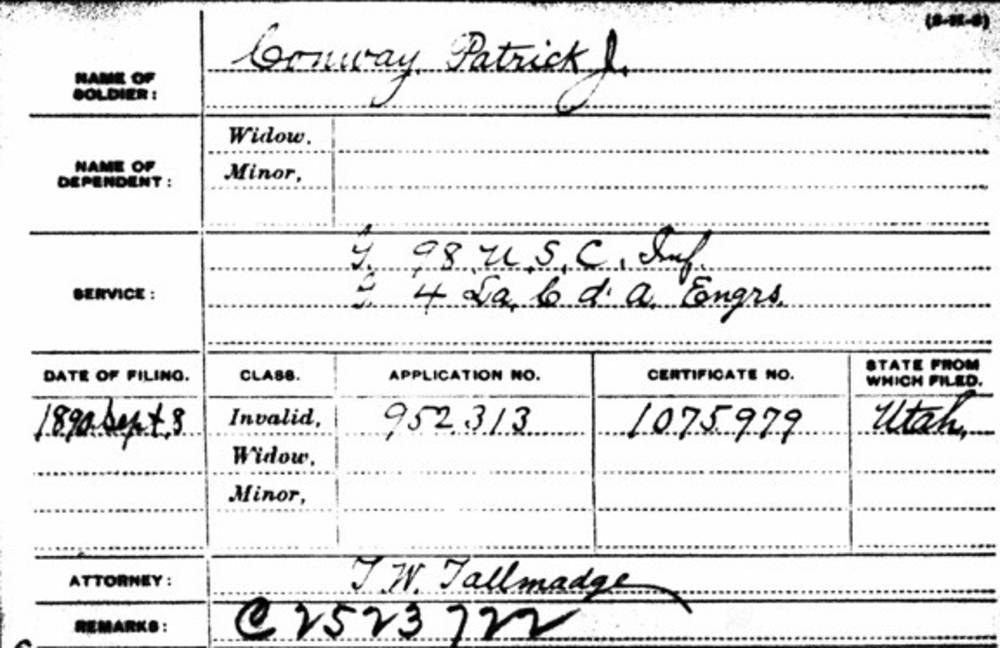 Conway, Patrick J.
NAME OF
SOLDIER:
Widow,
NAME OF
DEPENDENT:
Minor,
98 U.S.C. Inf.
SERVICE:
4 La. C d' A. Engrs.
DATE OF FILING. CLASS. APPLICATION NO. CERTIFICATE NO. STATE FROM
WHICH FILED.
1890 Sept. 8 Invalid, 952.313 1075.979 Utah,
Widow,
Minor,
ATTORNEY: T. W. Tallmadge
REMARKS: C 2523722